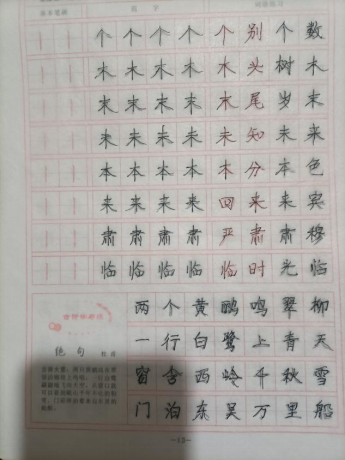 个 个 个 个 个 别 个 数
木 木 木 木 木 头 树 木
末 末 末 末 末 尾 岁 末
未 未 未 未 未 知 未 来
本 本 本 本 本 分 本 色
来 来 来 来 回 来 来 宾
肃 肃 肃 肃 严 肃 肃 穆
临 临 临 临 临 时 光 临
两 个 黄 鹂 鸣 翠 柳
一 行 白 鹭 上 青 天
窗 含 西 岭 千 秋 雪
门 泊 东 吴 万 里 船
绝 句 杜甫